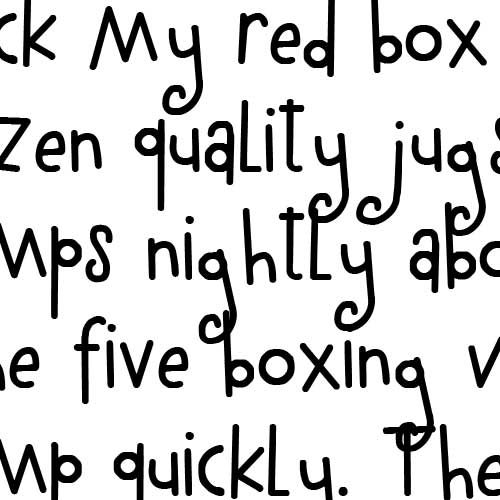 ck My red box
zen quality jugs
mps nightly abo
he five boxing v
mp quickly. The